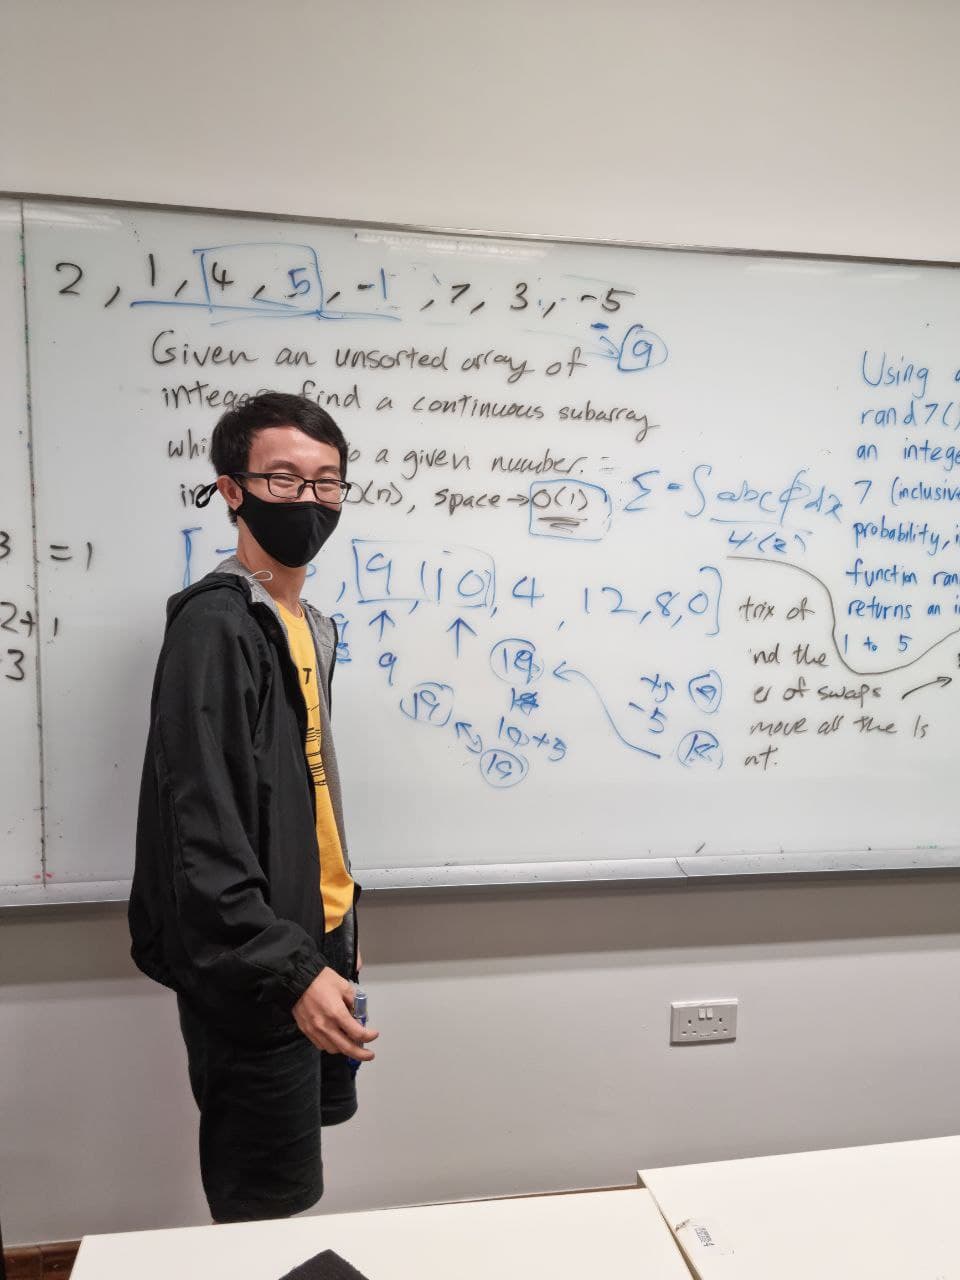 2, 1, 4, 5, -1, 7, 3, -5
9
Given an unsorted array of
find a continuous subarray
a given number.
O(n), space → O(1)
Σ = ∫ abc dx
, 9, 10, 4, 12, 8, 0]
9
19
19
10+5
15
+5
-5
= 1
2+1
3
trix of
nd the
er of swaps
move all the 1s
nt.
Using a
rand7()
an intege
7 (inclusive
probability, i
function ran
returns an i
1 to 5